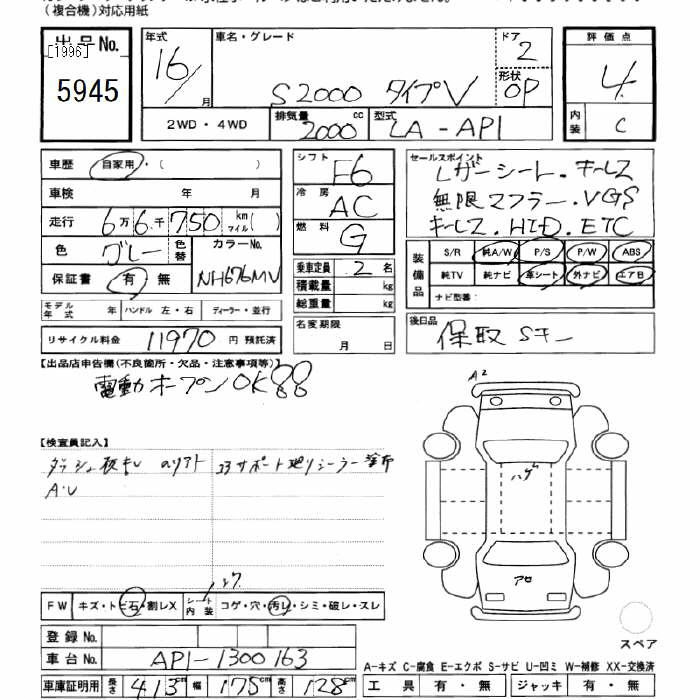 (複合機)対応用紙
出品No.
[1996]
5945
年式 16/ 月
車名・グレード S2000 タイプV
ドア 2
形状 OP
評価点 4
内装 C
2WD・4WD
排気量 2000 cc
型式 LA-AP1
車歴 自家用・( )
車検 年 月
走行 6万6千750 km マイル( )
色 グレー 色替
カラーNo. NH676MV
保証書 有・無
シフト F6
冷房 AC
燃料 G
乗車定員 2 名
積載量 kg
総重量 kg
セールスポイント
レザーシート・キーレス
無限マフラー・VGS
キーレス.HID.ETC
装備品
S/R 純A/W P/S P/W ABS
純TV 純ナビ 革シート 外ナビ エアB
ナビ型番:
モデル年式 年 ハンドル 左・右 ディーラー・並行
リサイクル料金 11970 円 預託済
名変期限 月 日
後日品 保取 Sキー
【出品店申告欄(不良箇所・欠品・注意事項等)】
電動オープンOK
A2
【検査員記入】
A・U
コアサポート廻りシーラー塗布
ハゲ
アロ
FW キズ・トビ石・割レX シート内装 コゲ・穴・汚レ・シミ・破レ・スレ
スペア
登録No.
車台No. AP1-1300163
A-キズ C-腐食 E-エクボ S-サビ U-凹ミ W-補修 XX-交換済
車庫証明用 長さ 413cm 幅 175cm 高さ 128cm
工具 有・無 ジャッキ 有・無